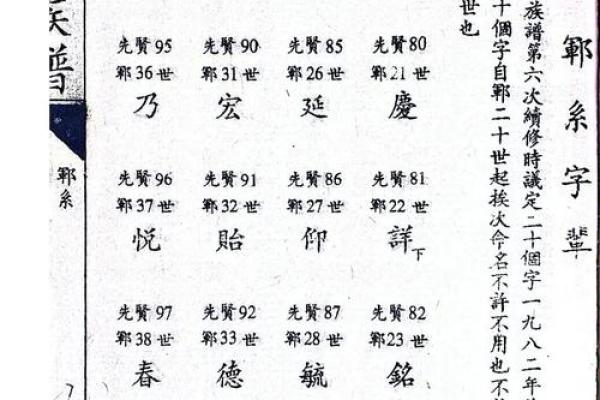 鄆系字輩
族譜第六次續修時議定二十個字一九八二年
十個字自鄆二十世起挨次命名不許不用也不
世也
先賢80世
鄆21世
慶
先賢81世
鄆22世
詳下
先賢82世
鄆23世
銘
先賢85世
鄆26世
延
先賢86世
鄆27世
仰
先賢87世
鄆28世
毓
先賢90世
鄆31世
宏
先賢91世
鄆32世
貽
先賢92世
鄆33世
德
先賢95世
鄆36世
乃
先賢96世
鄆37世
悅
先賢97世
鄆38世
春
族譜
鄆系